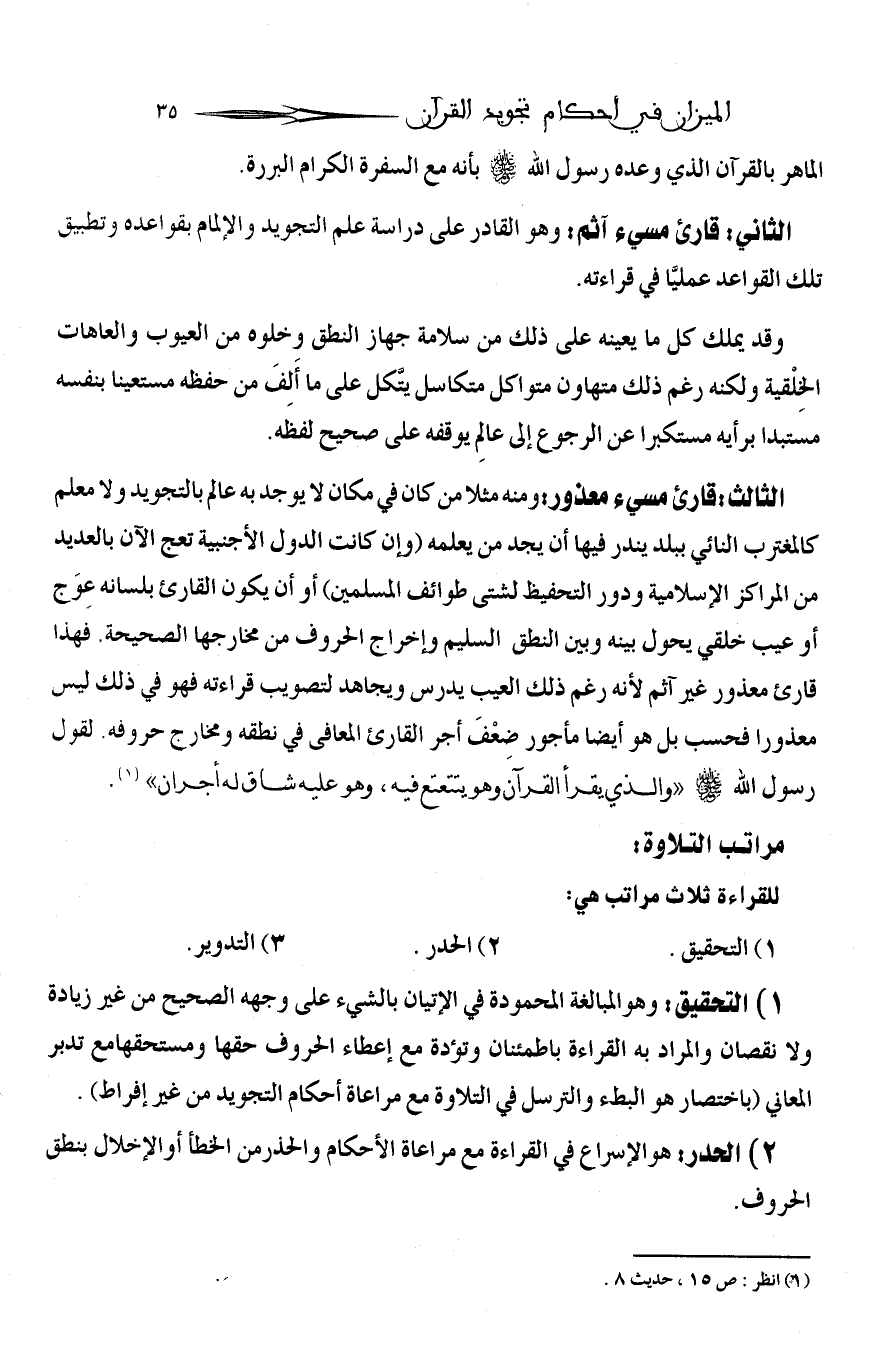 الميزان في أحكام تجويد القرآن ٣٥
الماهر بالقرآن الذي وعده رسول الله ﷺ بأنه مع السفرة الكرام البررة.
الثاني: قارئ مسيء آثم: وهو القادر على دراسة علم التجويد والإلمام بقواعده وتطبيق
تلك القواعد عمليًّا في قراءته.
وقد يملك كل ما يعينه على ذلك من سلامة جهاز النطق وخلوه من العيوب والعاهات
الخِلْقية ولكنه رغم ذلك متهاون متواكل متكاسل يتَّكل على ما أَلِفَ من حفظه مستعينا بنفسه
مستبدا برأيه مستكبرا عن الرجوع إلى عالِم يوقفه على صحيح لفظه.
الثالث: قارئ مسيء معذور: ومنه مثلا من كان في مكان لا يوجد به عالم بالتجويد ولا معلم
كالمغترب النائي ببلد يندر فيها أن يجد من يعلمه (وإن كانت الدول الأجنبية تعج الآن بالعديد
من المراكز الإسلامية ودور التحفيظ لشتى طوائف المسلمين) أو أن يكون القارئ بلسانه عِوَج
أو عيب خلقي يحول بينه وبين النطق السليم وإخراج الحروف من مخارجها الصحيحة. فهذا
قارئ معذور غير آثم لأنه رغم ذلك العيب يدرس ويجاهد لتصويب قراءته فهو في ذلك ليس
معذورا فحسب بل هو أيضا مأجور ضِعْفَ أجر القارئ المعافى في نطقه ومخارج حروفه. لقول
رسول الله ﷺ «والـذي يقـرأ القـرآن وهو يتتعتع فيه، وهو عليه شـاق له أجـران» (١).
مراتـب التـلاوة:
للقراءة ثلاث مراتب هي:
١) التحقيق. ٢) الحدر. ٣) التدوير.
١) التحقيق: وهو المبالغة المحمودة في الإتيان بالشيء على وجهه الصحيح من غير زيادة
ولا نقصان والمراد به القراءة باطمئنان وتؤدة مع إعطاء الحروف حقها ومستحقها مع تدبر
المعاني (باختصار هو البطء والترسل في التلاوة مع مراعاة أحكام التجويد من غير إفراط).
٢) الحدر: هو الإسراع في القراءة مع مراعاة الأحكام والحذر من الخطأ أو الإخلال بنطق
الحروف.
(١) انظر: ص ١٥، حديث ٨.